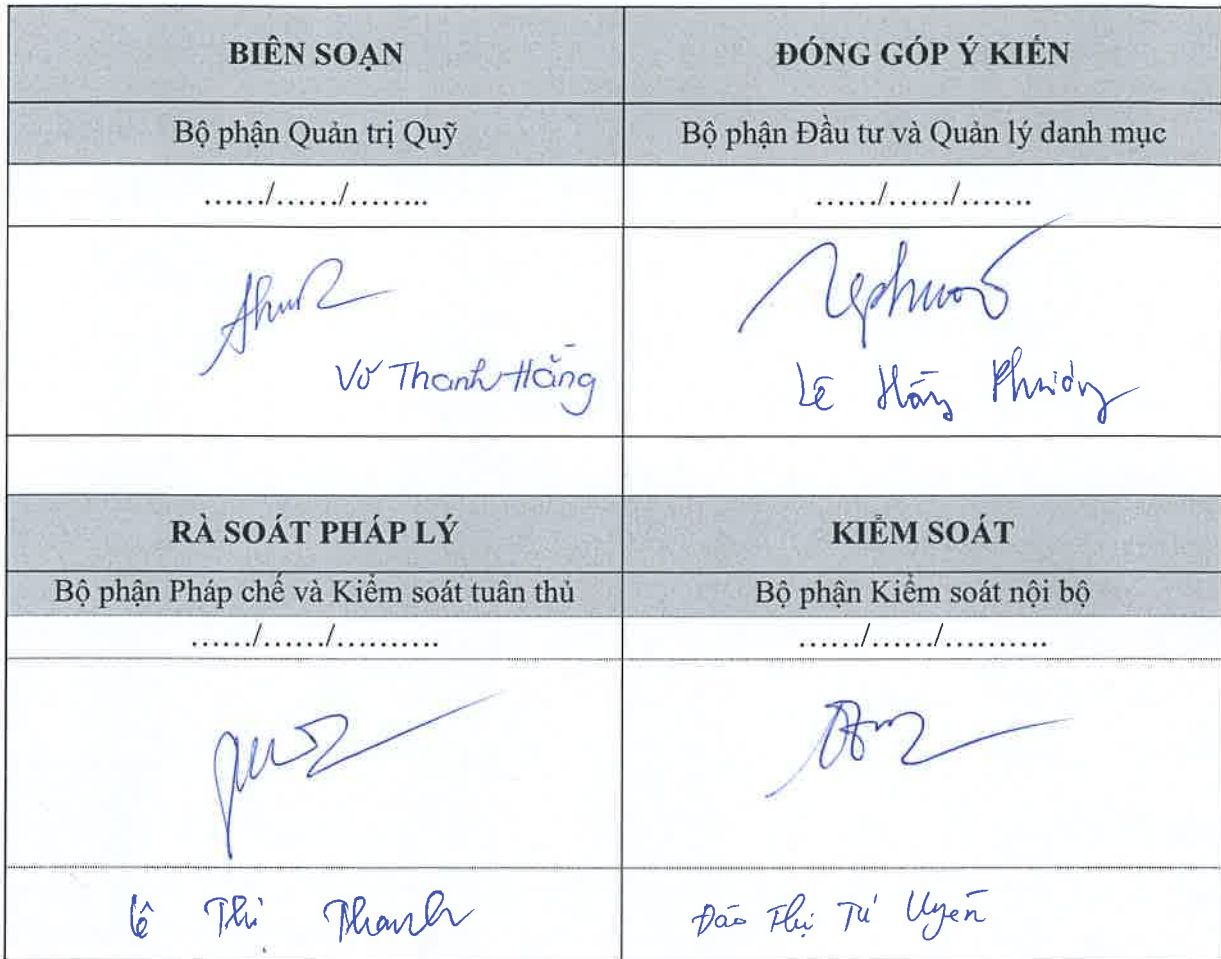 BIÊN SOẠN
ĐÓNG GÓP Ý KIẾN
Bộ phận Quản trị Quỹ
Bộ phận Đầu tư và Quản lý danh mục
....../....../........
....../....../.......
Võ Thanh Hằng
Lê Hồng Phương
RÀ SOÁT PHÁP LÝ
KIỂM SOÁT
Bộ phận Pháp chế và Kiểm soát tuân thủ
Bộ phận Kiểm soát nội bộ
....../....../..........
....../....../..........
Lê Thị Thanh
Đào Thị Tú Uyên